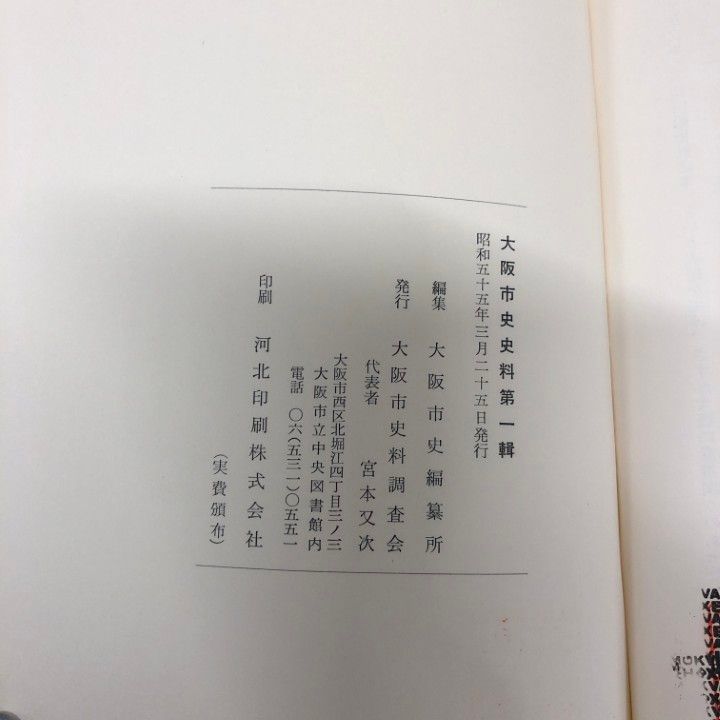 大阪市史史料第一輯
昭和五十五年三月二十五日発行
編集 大阪市史編纂所
発行 大阪市史料調査会
代表者 宮本又次
大阪市西区北堀江四丁目三ノ三
大阪市立中央図書館内
電話 〇六(五三一)〇五五一
印刷 河北印刷株式会社
(実費頒布)